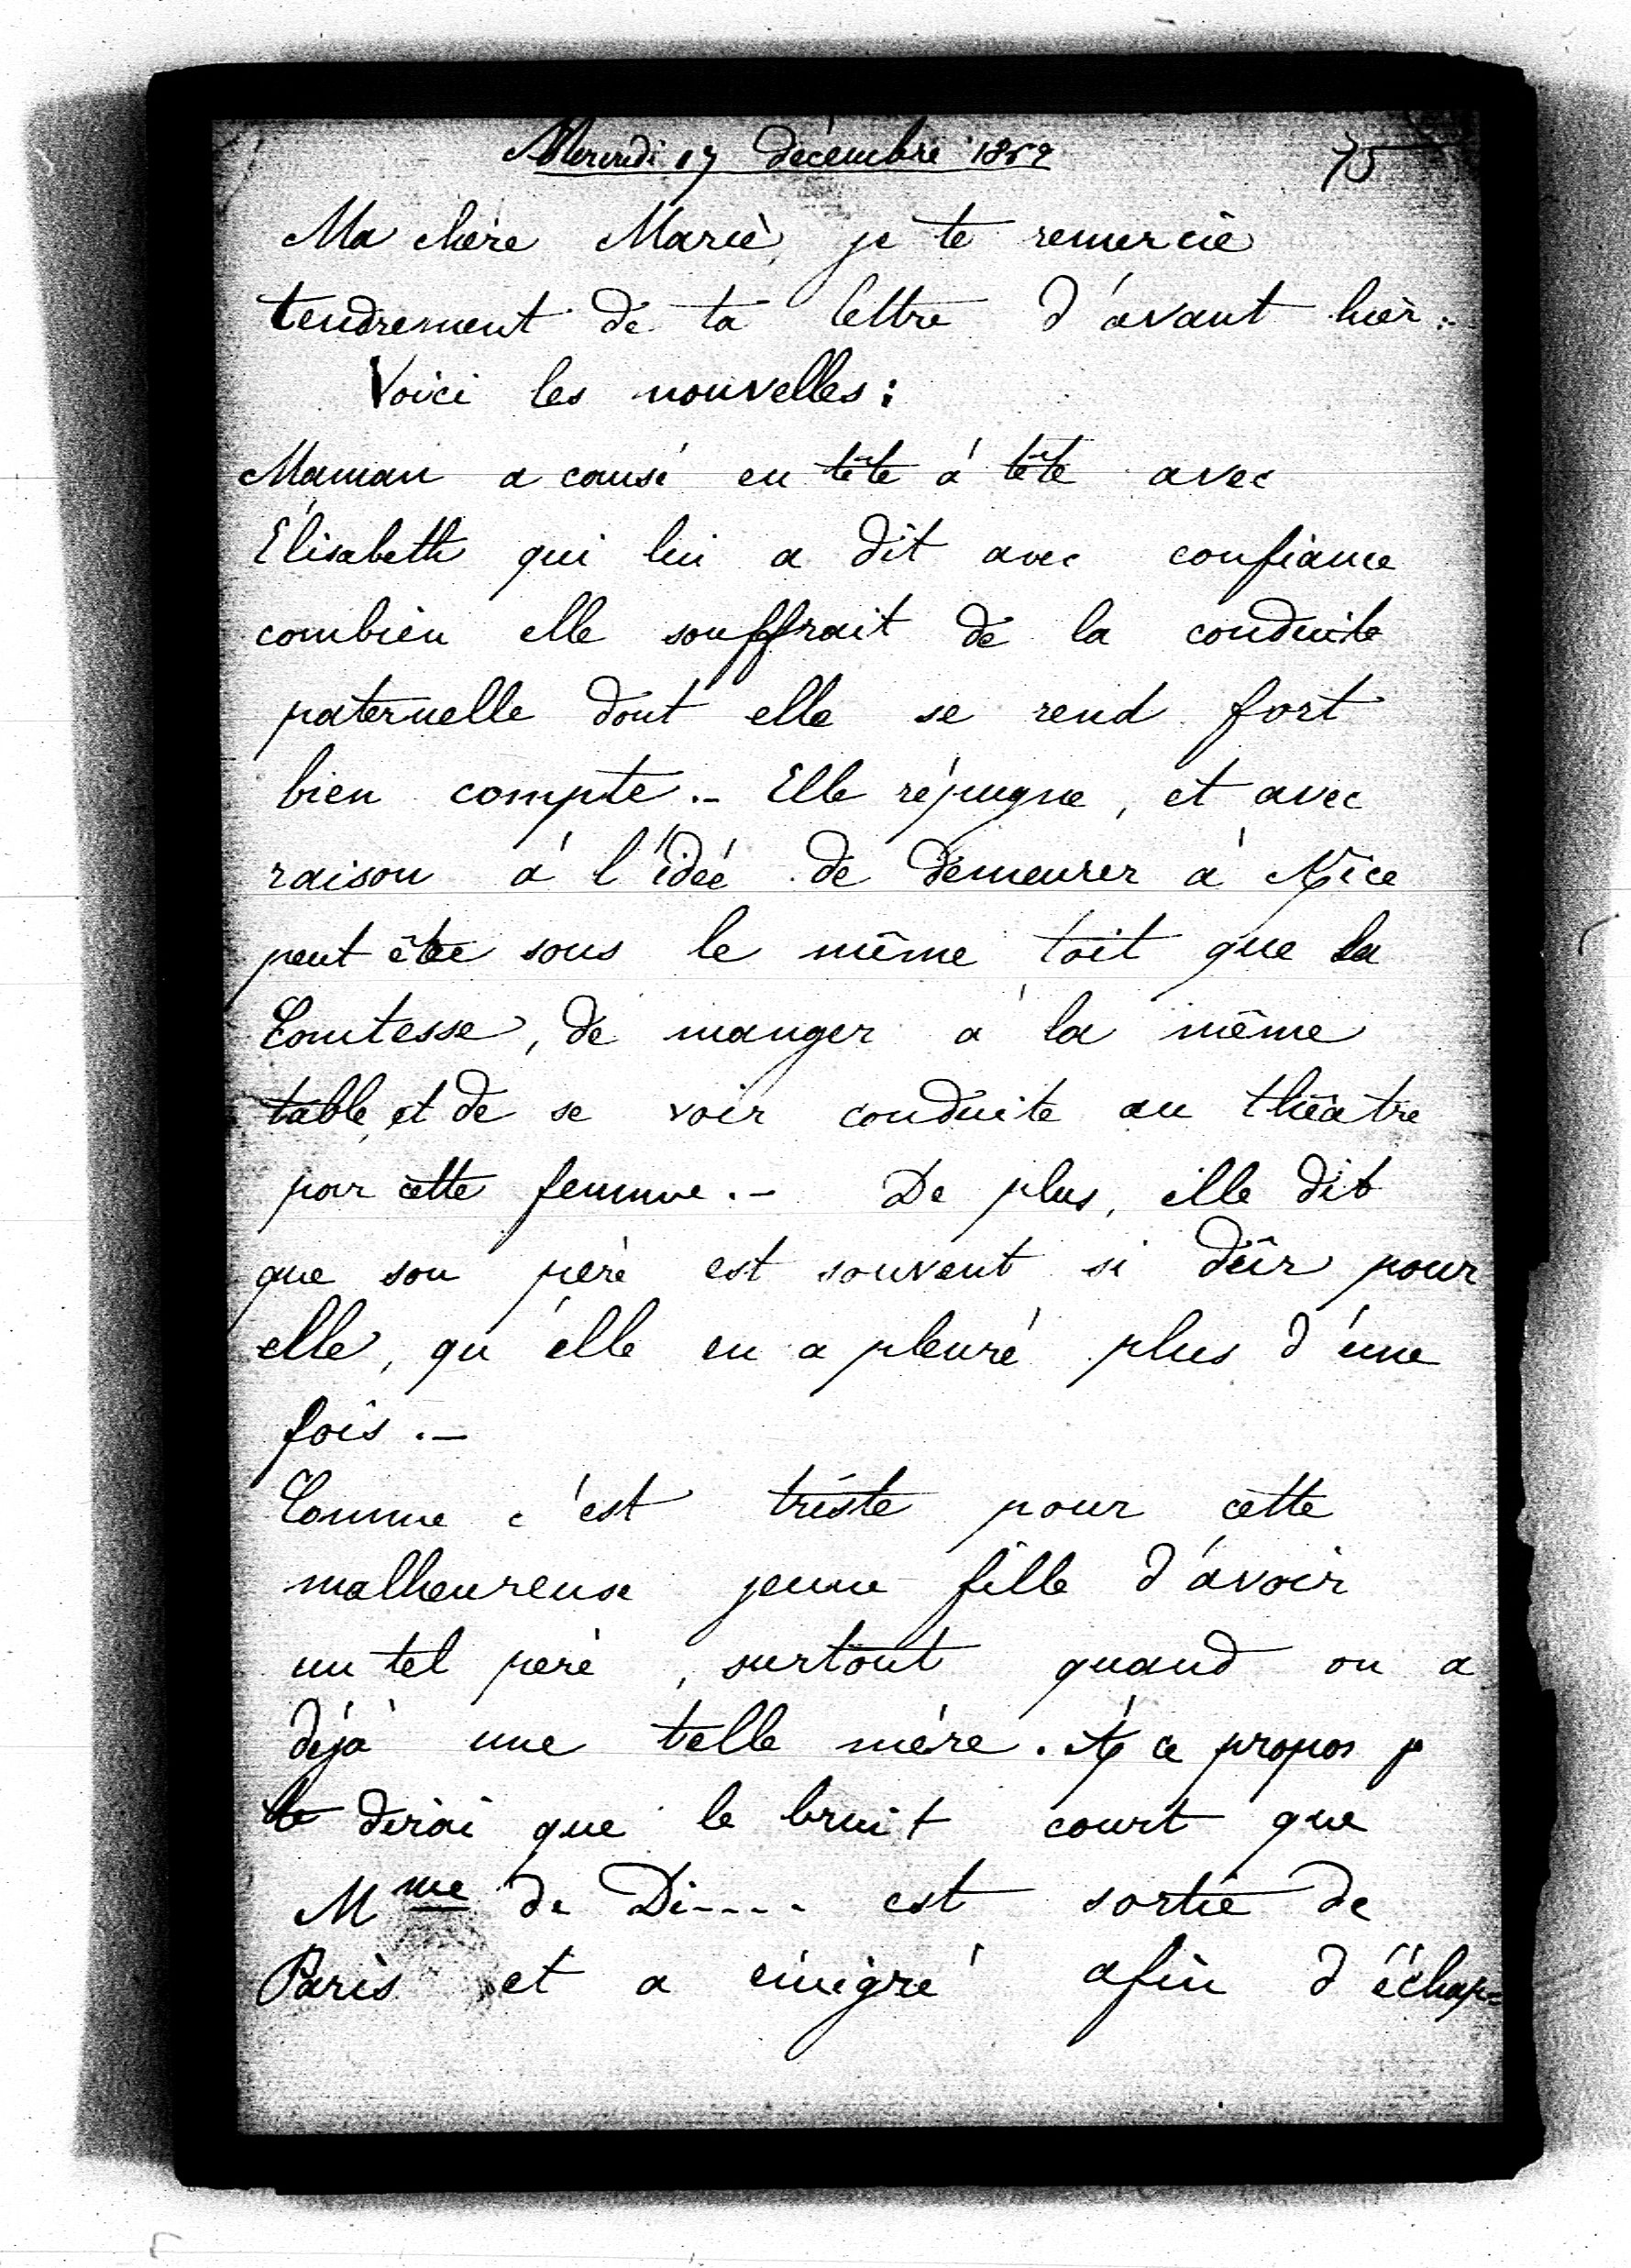 Mercredi 17 décembre 1862
75
Ma chère Marie, je te remercie
tendrement de ta lettre d'avant hier.
Voici les nouvelles :
Maman a causé en tête à tête avec
Élisabeth qui lui a dit avec confiance
combien elle souffrait de la conduite
paternelle dont elle se rend fort
bien compte. - Elle répugne, et avec
raison à l'idée de demeurer à Nice
peut être sous le même toit que la
Comtesse, de manger à la même
table, et de se voir conduite au théâtre
par cette femme. - De plus, elle dit
que son père est souvent si dur pour
elle, qu'elle en a pleuré plus d'une
fois. -
Comme c'est triste pour cette
malheureuse jeune fille d'avoir
un tel père, surtout quand on a
déjà une telle mère. A ce propos je
te dirai que le bruit court que
Mme de Di---- est sortie de
Paris et a émigré afin d'échap=